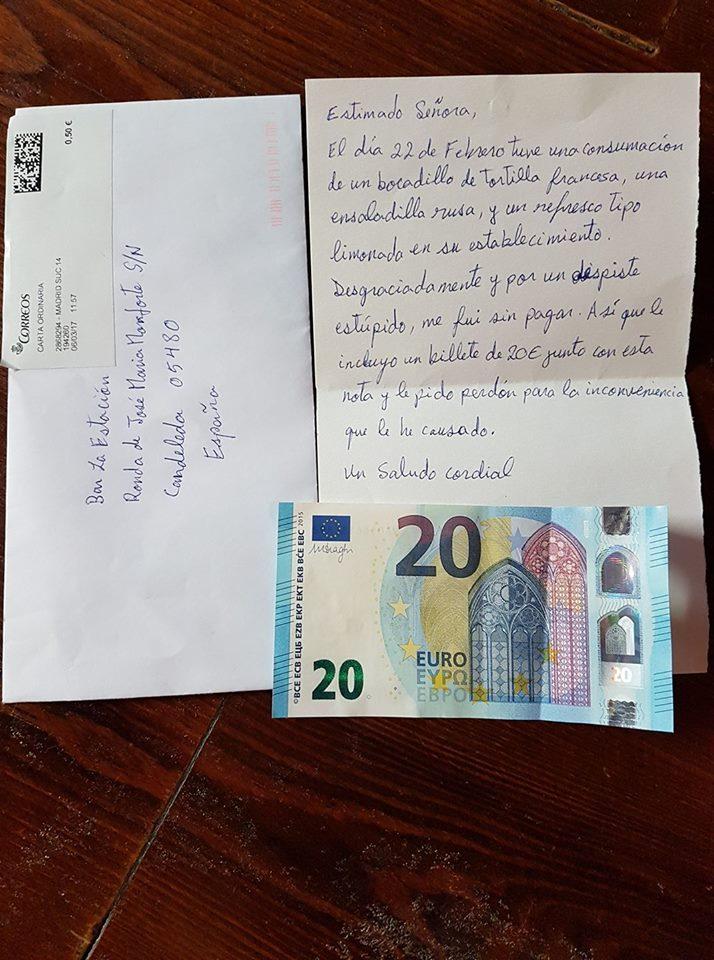 0,50 €
Correos
CARTA ORDINARIA
2868294 - MADRID SUC 14
194260
06/03/17 11:57
Bar La Estación
Ronda de José María Monforte S/N
Candeleda 05480
España
Estimado Señora,
El día 22 de Febrero tuve una consumación
de un bocadillo de tortilla francesa, una
ensaladilla rusa, y un refresco tipo
limonada en su establecimiento.
Desgraciadamente y por un despiste
estúpido, me fui sin pagar. Así que le
incluyo un billete de 20€ junto con esta
nota y le pido perdón para la inconveniencia
que le he causado.
Un Saludo cordial
©BCE ECB ЕЦБ EZB EKP EKT EKB BĊE EBC 2015
20
20
EURO
ΕΥΡΩ
ЕВРО
20